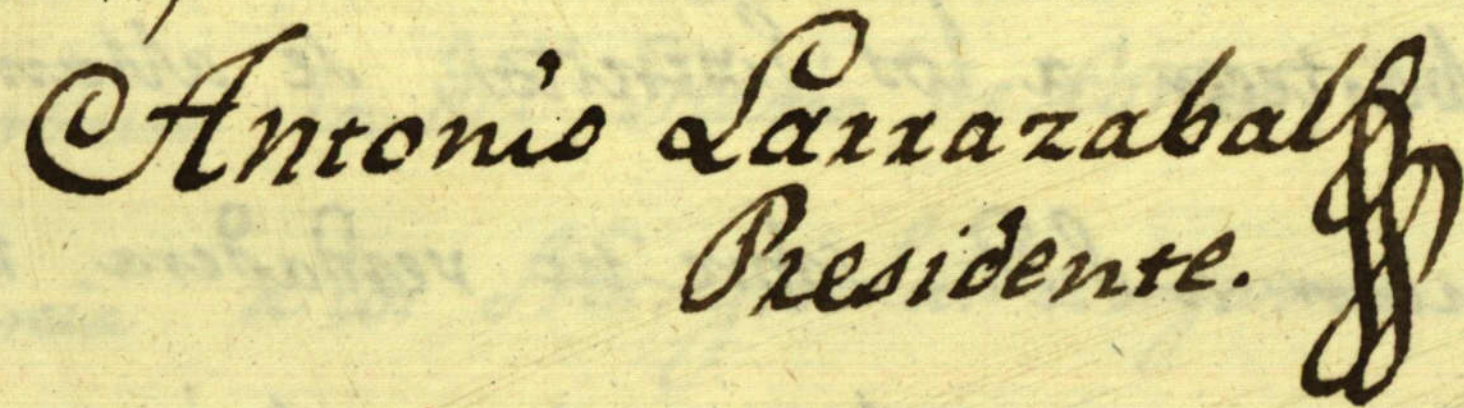 Antonio Larrazabal
Presidente.